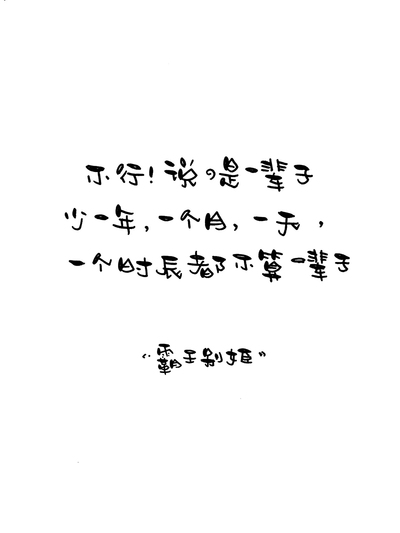 不行！说的是一辈子
少一年，一个月，一天，
一个时辰都不算一辈子
“霸王别姬”